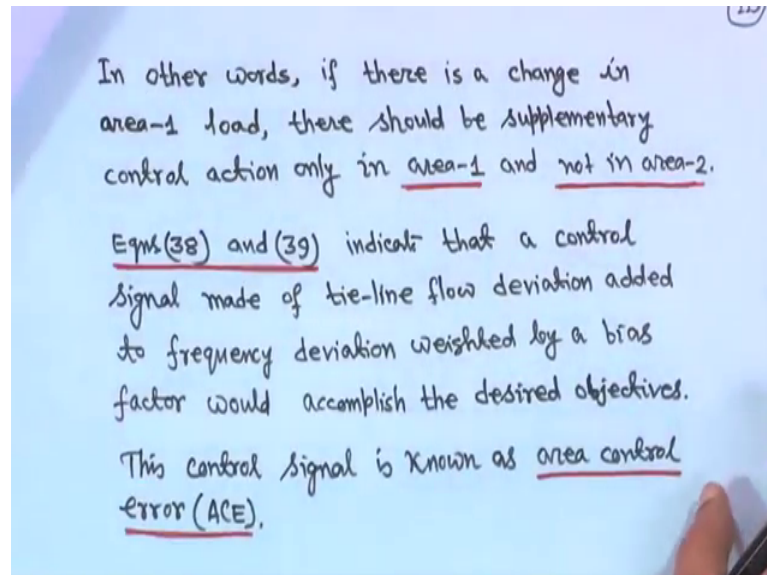 In other words, if there is a change in
area-1 load, there should be supplementary
control action only in area-1 and not in area-2.
Eqns(38) and (39) indicate that a control
signal made of tie-line flow deviation added
to frequency deviation weighted by a bias
factor would accomplish the desired objectives.
This control signal is known as area control
error (ACE).